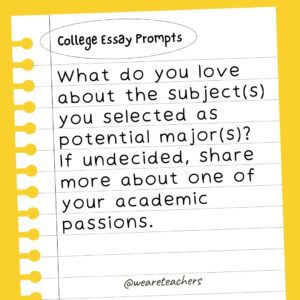 College Essay Prompts
What do you love
about the subject(s)
you selected as
potential major(s)?
If undecided, share
more about one of
your academic
passions.
@weareteachers